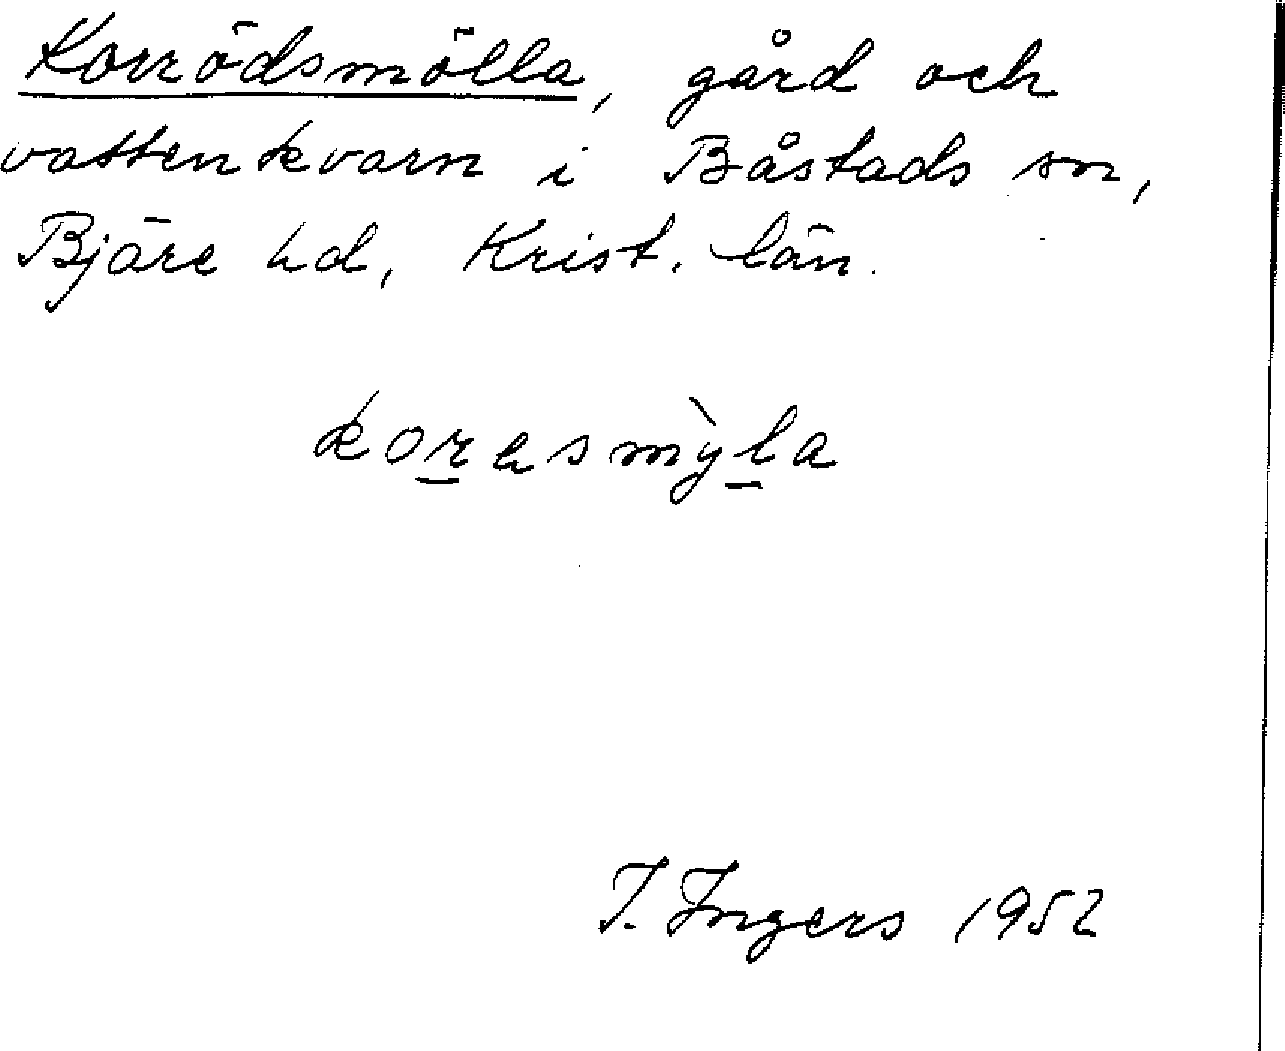 Korrödsmölla, gård och
vattenkvarn i Båstads sn,
Bjäre hd, Krist. län.
korasmỳla
I. Ingers 1952